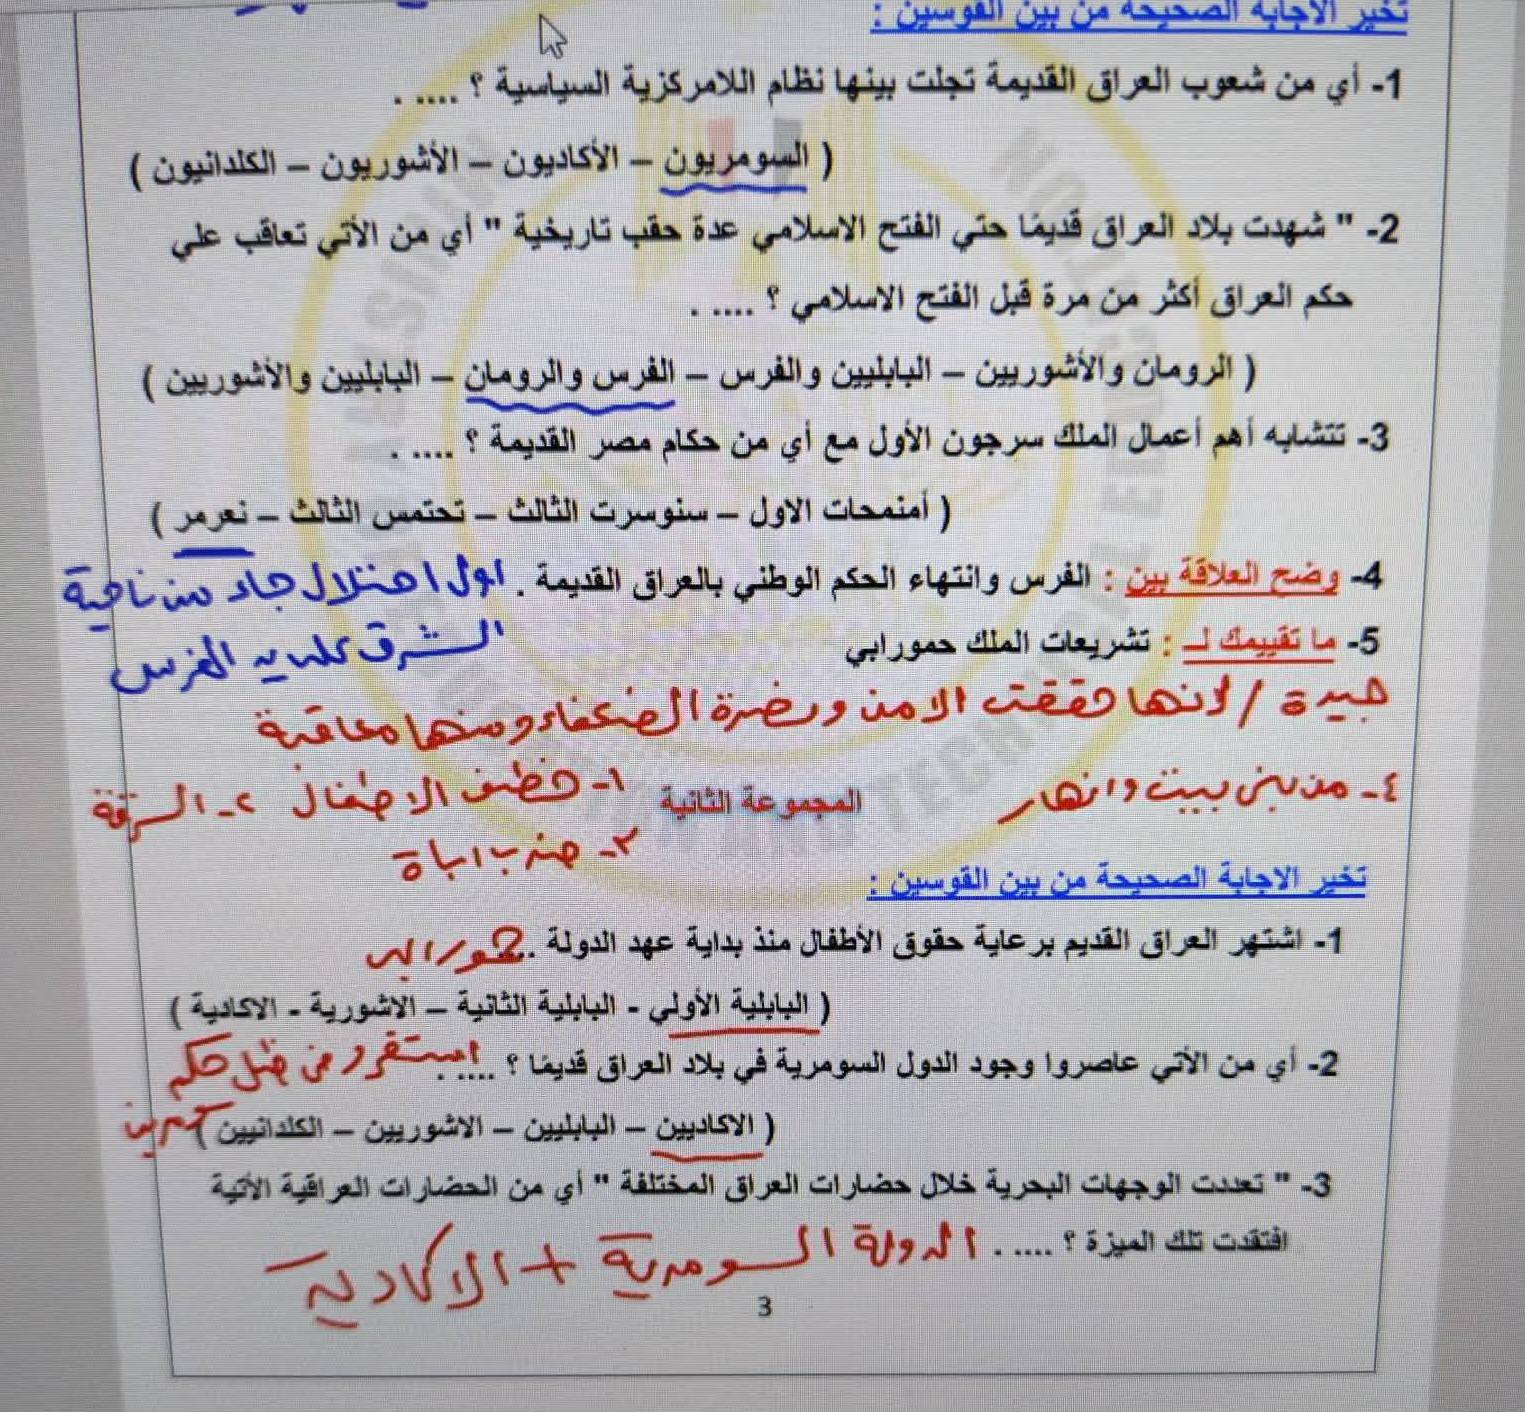 تخير الاجابة الصحيحة من بين القوسين :
1- أي من شعوب العراق القديمة تجلت بينها نظام اللامركزية السياسية ؟ .... .
( السومريون – الأكاديون – الأشوريون – الكلدانيون )
2- " شهدت بلاد العراق قديمًا حتي الفتح الاسلامي عدة حقب تاريخية " أي من الأتي تعاقب علي
حكم العراق أكثر من مرة قبل الفتح الاسلامي ؟ .... .
( الرومان والأشوريين – البابليين والفرس – الفرس والرومان – البابليين والأشوريين )
3- تتشابه أهم أعمال الملك سرجون الأول مع أي من حكام مصر القديمة ؟ .... .
( أمنمحات الاول – سنوسرت الثالث – تحتمس الثالث – نعرمر )
4- وضح العلاقة بين : الفرس وانتهاء الحكم الوطني بالعراق القديمة . اول احتلال جاء من ناحية
الشرق علي يد الفرس
5- ما تقييمك لـ : تشريعات الملك حمورابي
جيدة / لانها حققت الامن ونصرة الضعفاء ومنها معاقبة
١- خطف الاطفال ٢- السرقة
٣- ضرب اباة
٤- من يبني بيت وانهار
المجموعة الثانية
تخير الاجابة الصحيحة من بين القوسين :
1- اشتهر العراق القديم برعاية حقوق الأطفال منذ بداية عهد الدولة ..
( البابلية الأولي - البابلية الثانية – الاشورية - الاكادية )
2- أي من الأتي عاصروا وجود الدول السومرية في بلاد العراق قديمًا ؟ .... . استقروا في ظل حكم
( الاكاديين – البابليين – الاشوريين – الكلدانيين )
3- " تعددت الوجهات البحرية خلال حضارات العراق المختلفة " أي من الحضارات العراقية الأتية
افتقدت تلك الميزة ؟ .... . الدولة السومرية + الاكادية
3